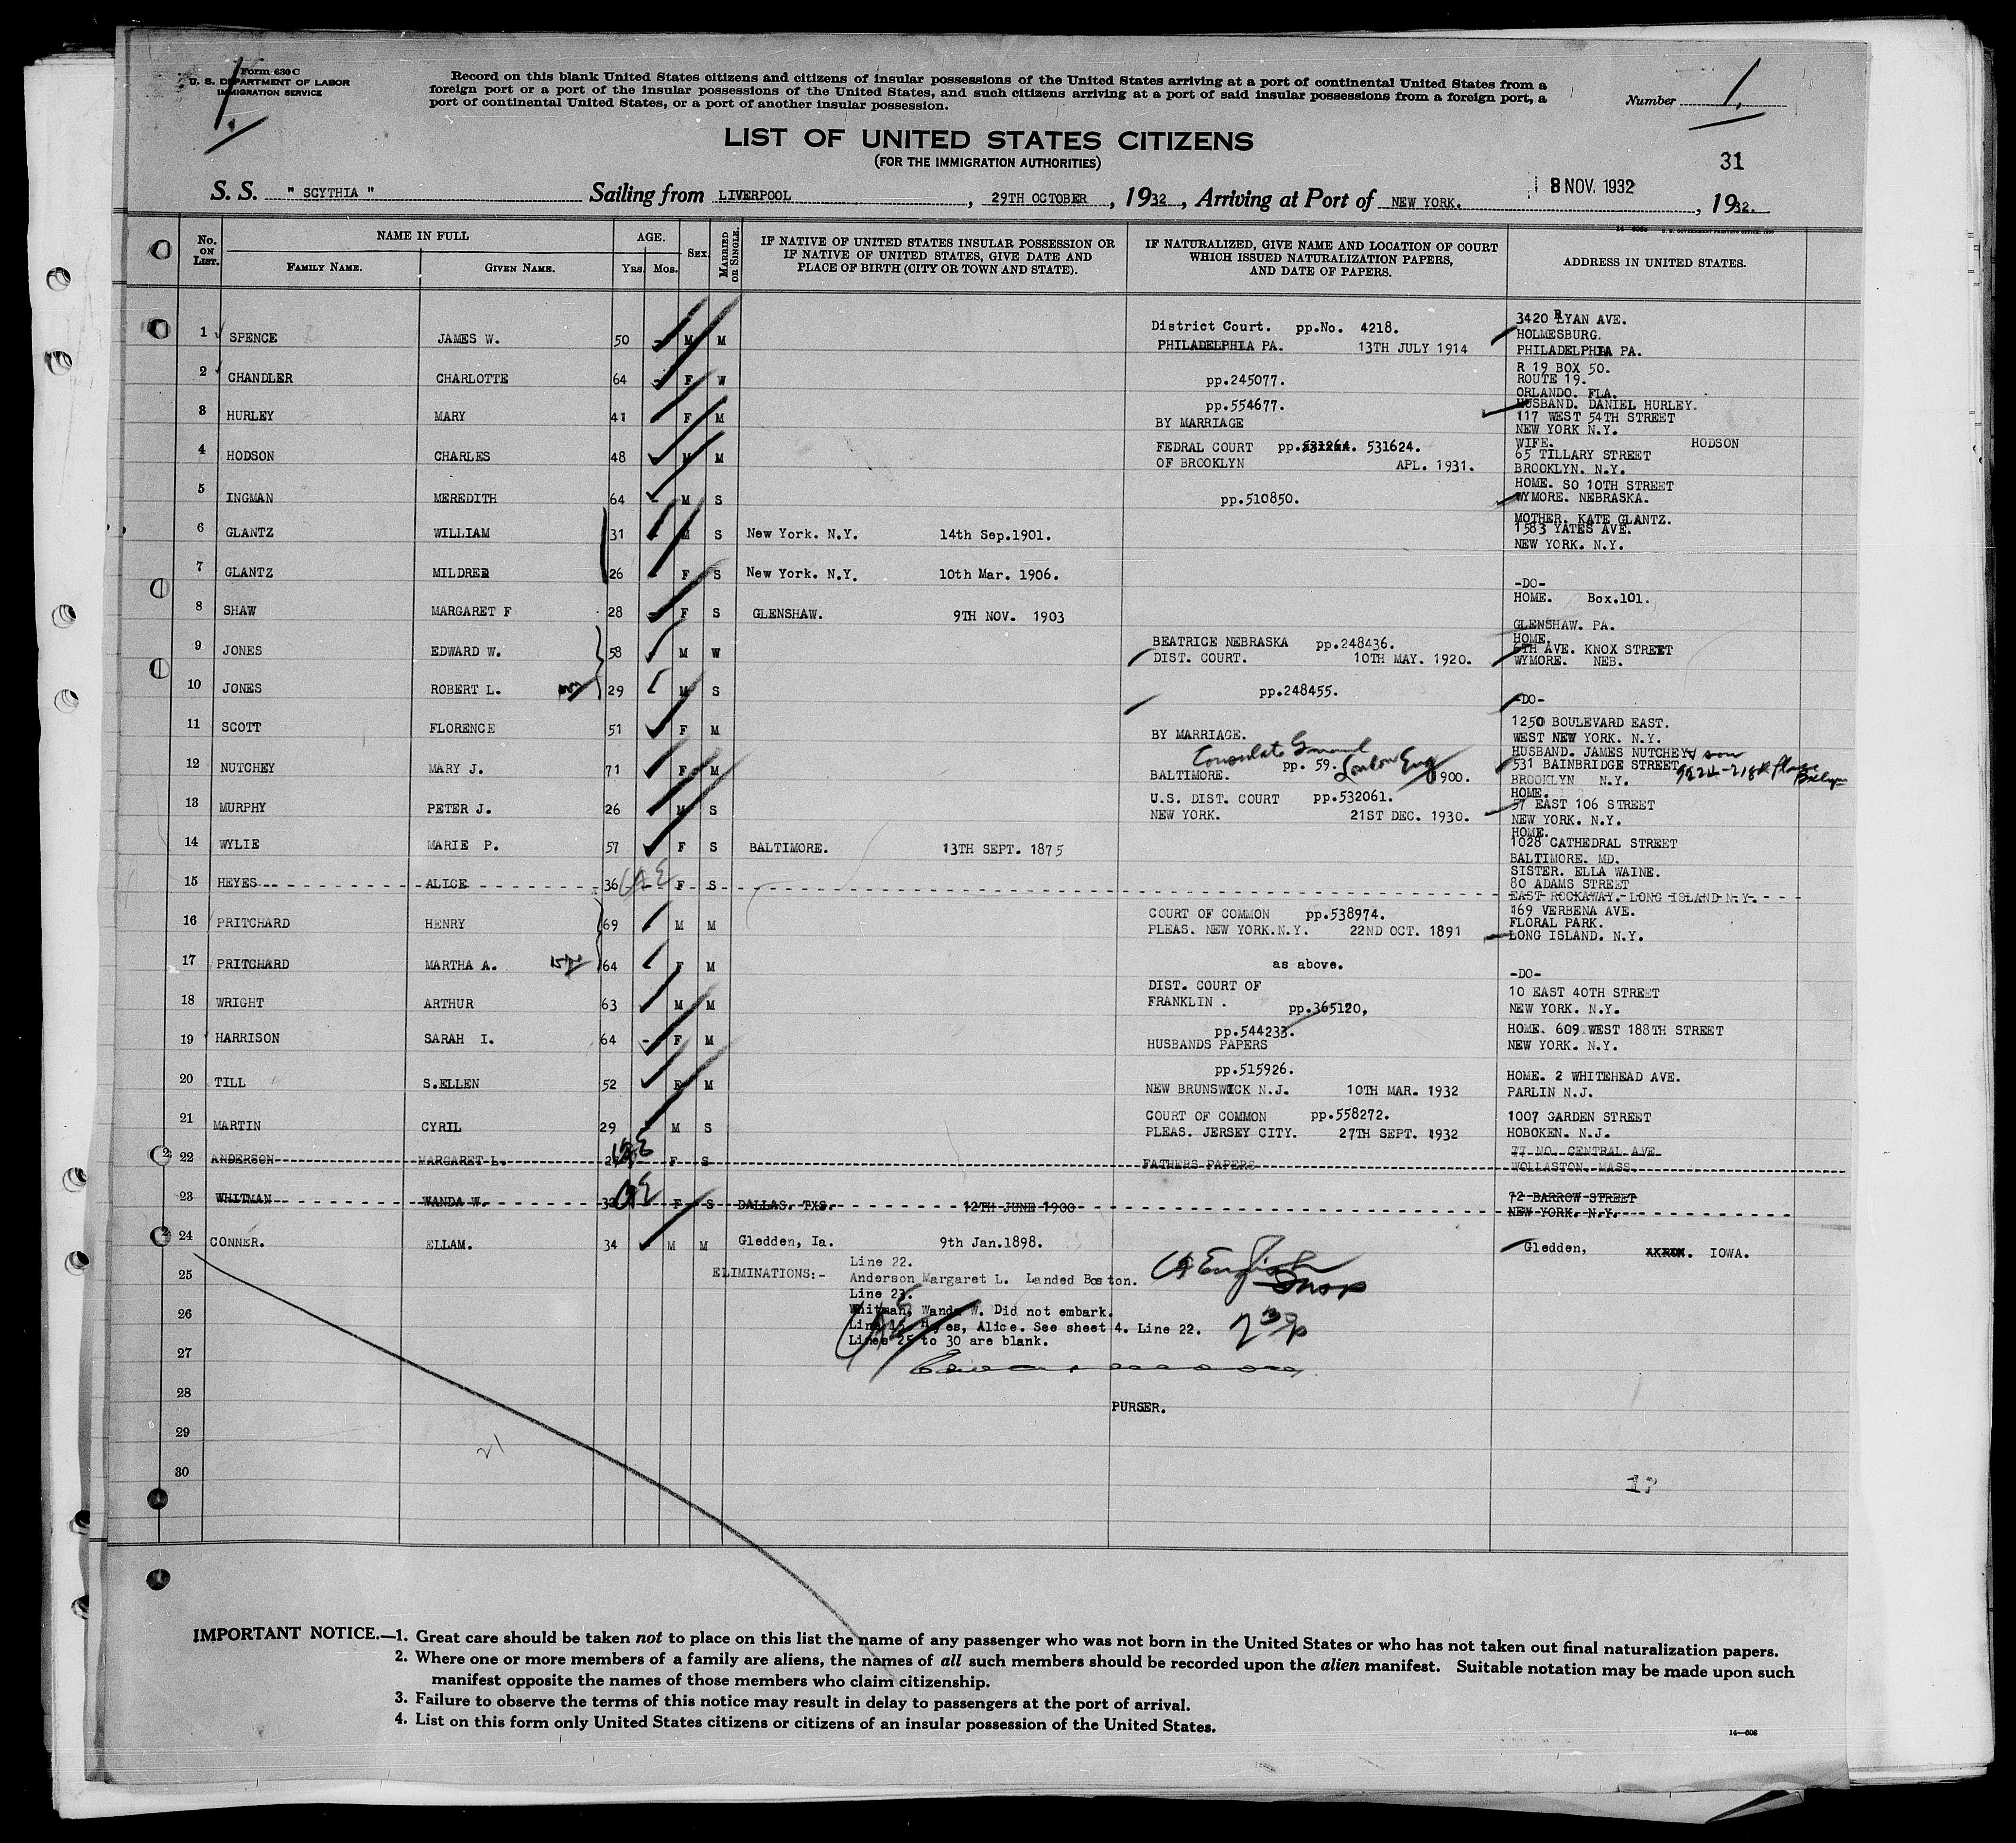 Form 630 C
U. S. DEPARTMENT OF LABOR
IMMIGRATION SERVICE
1.
Record on this blank United States citizens and citizens of insular possessions of the United States arriving at a port of continental United States from a
foreign port or a port of the insular possessions of the United States, and such citizens arriving at a port of said insular possessions from a foreign port, a
port of continental United States, or a port of another insular possession.
Number 1.
LIST OF UNITED STATES CITIZENS
(FOR THE IMMIGRATION AUTHORITIES)
31
S. S. " SCYTHIA " Sailing from LIVERPOOL, 29TH OCTOBER, 1932, Arriving at Port of NEW YORK. 8 NOV. 1932, 1932.
No. ON LIST.
NAME IN FULL
FAMILY NAME. GIVEN NAME.
AGE.
YRS. MOS.
SEX
MARRIED OR SINGLE.
IF NATIVE OF UNITED STATES INSULAR POSSESSION OR
IF NATIVE OF UNITED STATES, GIVE DATE AND
PLACE OF BIRTH (CITY OR TOWN AND STATE).
IF NATURALIZED, GIVE NAME AND LOCATION OF COURT
WHICH ISSUED NATURALIZATION PAPERS,
AND DATE OF PAPERS.
ADDRESS IN UNITED STATES.
1 SPENCE JAMES W. 50 - M M District Court. pp.No. 4218.
PHILADELPHIA PA. 13TH JULY 1914
3420 RYAN AVE.
HOLMESBURG.
PHILADELPHIA PA.
2 CHANDLER CHARLOTTE 64 - F W pp.245077.
R 19 BOX 50.
ROUTE 19.
ORLANDO. FLA.
3 HURLEY MARY 41 F M pp.554677.
BY MARRIAGE
HUSBAND. DANIEL HURLEY.
117 WEST 54TH STREET
NEW YORK N.Y.
4 HODSON CHARLES 48 M M FEDRAL COURT pp.531264. 531624.
OF BROOKLYN APL. 1931.
WIFE. HODSON
65 TILLARY STREET
BROOKLYN. N.Y.
5 INGMAN MEREDITH 64 - M S pp.510850.
HOME. SO 10TH STREET
WYMORE. NEBRASKA.
6 GLANTZ WILLIAM 31 - M S New York. N.Y. 14th Sep.1901.
MOTHER. KATE GLANTZ.
1583 YATES AVE.
NEW YORK. N.Y.
7 GLANTZ MILDRED 26 - F S New York. N.Y. 10th Mar. 1906.
-DO-
8 SHAW MARGARET F 28 - F S GLENSHAW. 9TH NOV. 1903
HOME. Box.101.
GLENSHAW. PA.
9 JONES EDWARD W. 58 M W BEATRICE NEBRASKA pp.248436.
DIST. COURT. 10TH MAY. 1920.
HOME.
6TH AVE. KNOX STREET
WYMORE. NEB.
10 JONES ROBERT L. 29 M S pp.248455.
-DO-
11 SCOTT FLORENCE 51 F M
BY MARRIAGE.
1250 BOULEVARD EAST.
WEST NEW YORK. N.Y.
12 NUTCHEY MARY J. 71 F M Consulate General
pp. 59. London Eng
BALTIMORE. 1900.
HUSBAND. JAMES NUTCHEY & son
531 BAINBRIDGE STREET
BROOKLYN N.Y.
13 MURPHY PETER J. 26 M S U.S. DIST. COURT pp.532061.
NEW YORK. 21ST DEC. 1930.
HOME.
57 EAST 106 STREET
NEW YORK. N.Y.
14 WYLIE MARIE P. 57 F S BALTIMORE. 13TH SEPT. 1875
HOME.
1028 CATHEDRAL STREET
BALTIMORE. MD.
15 HEYES ALICE 36 - F S
SISTER. ELLA WAINE.
80 ADAMS STREET
EAST ROCKAWAY. LONG ISLAND N.Y.
16 PRITCHARD HENRY 69 M M COURT OF COMMON pp.538974.
PLEAS. NEW YORK.N.Y. 22ND OCT. 1891
169 VERBENA AVE.
FLORAL PARK.
LONG ISLAND. N.Y.
17 PRITCHARD MARTHA A. 64 F M as above.
-DO-
18 WRIGHT ARTHUR 63 M M DIST. COURT OF
FRANKLIN . pp.365120,
10 EAST 40TH STREET
NEW YORK. N.Y.
19 HARRISON SARAH I. 64 - F M pp.544233.
HUSBANDS PAPERS
HOME. 609 WEST 188TH STREET
NEW YORK. N.Y.
20 TILL S.ELLEN 52 F M pp.515926.
NEW BRUNSWICK N.J. 10TH MAR. 1932
HOME. 2 WHITEHEAD AVE.
PARLIN N.J.
21 MARTIN CYRIL 29 M S COURT OF COMMON pp.558272.
PLEAS. JERSEY CITY. 27TH SEPT. 1932
1007 GARDEN STREET
HOBOKEN. N.J.
22 ANDERSON MARGARET L. F S FATHERS PAPERS
77 NO. CENTRAL AVE
WOLLASTON. MASS.
23 WHITMAN WANDA W. 32 F S DALLAS. TXS. 12TH JUNE 1900
72 BARROW STREET
NEW YORK. N.Y.
24 CONNER. ELLAM. 34 M M Gledden, Ia. 9th Jan.1898.
Gledden, IOWA.
25 ELIMINATIONS:- Line 22.
Anderson Margaret L. Landed Boston.
Line 23.
Whitman, Wanda W. Did not embark.
26 Line 15. Heyes, Alice. See sheet 4. Line 22.
Lines 25 to 30 are blank.
27
28
PURSER.
29
21
30
IMPORTANT NOTICE.—1. Great care should be taken not to place on this list the name of any passenger who was not born in the United States or who has not taken out final naturalization papers.
2. Where one or more members of a family are aliens, the names of all such members should be recorded upon the alien manifest. Suitable notation may be made upon such
manifest opposite the names of those members who claim citizenship.
3. Failure to observe the terms of this notice may result in delay to passengers at the port of arrival.
4. List on this form only United States citizens or citizens of an insular possession of the United States.
14—608